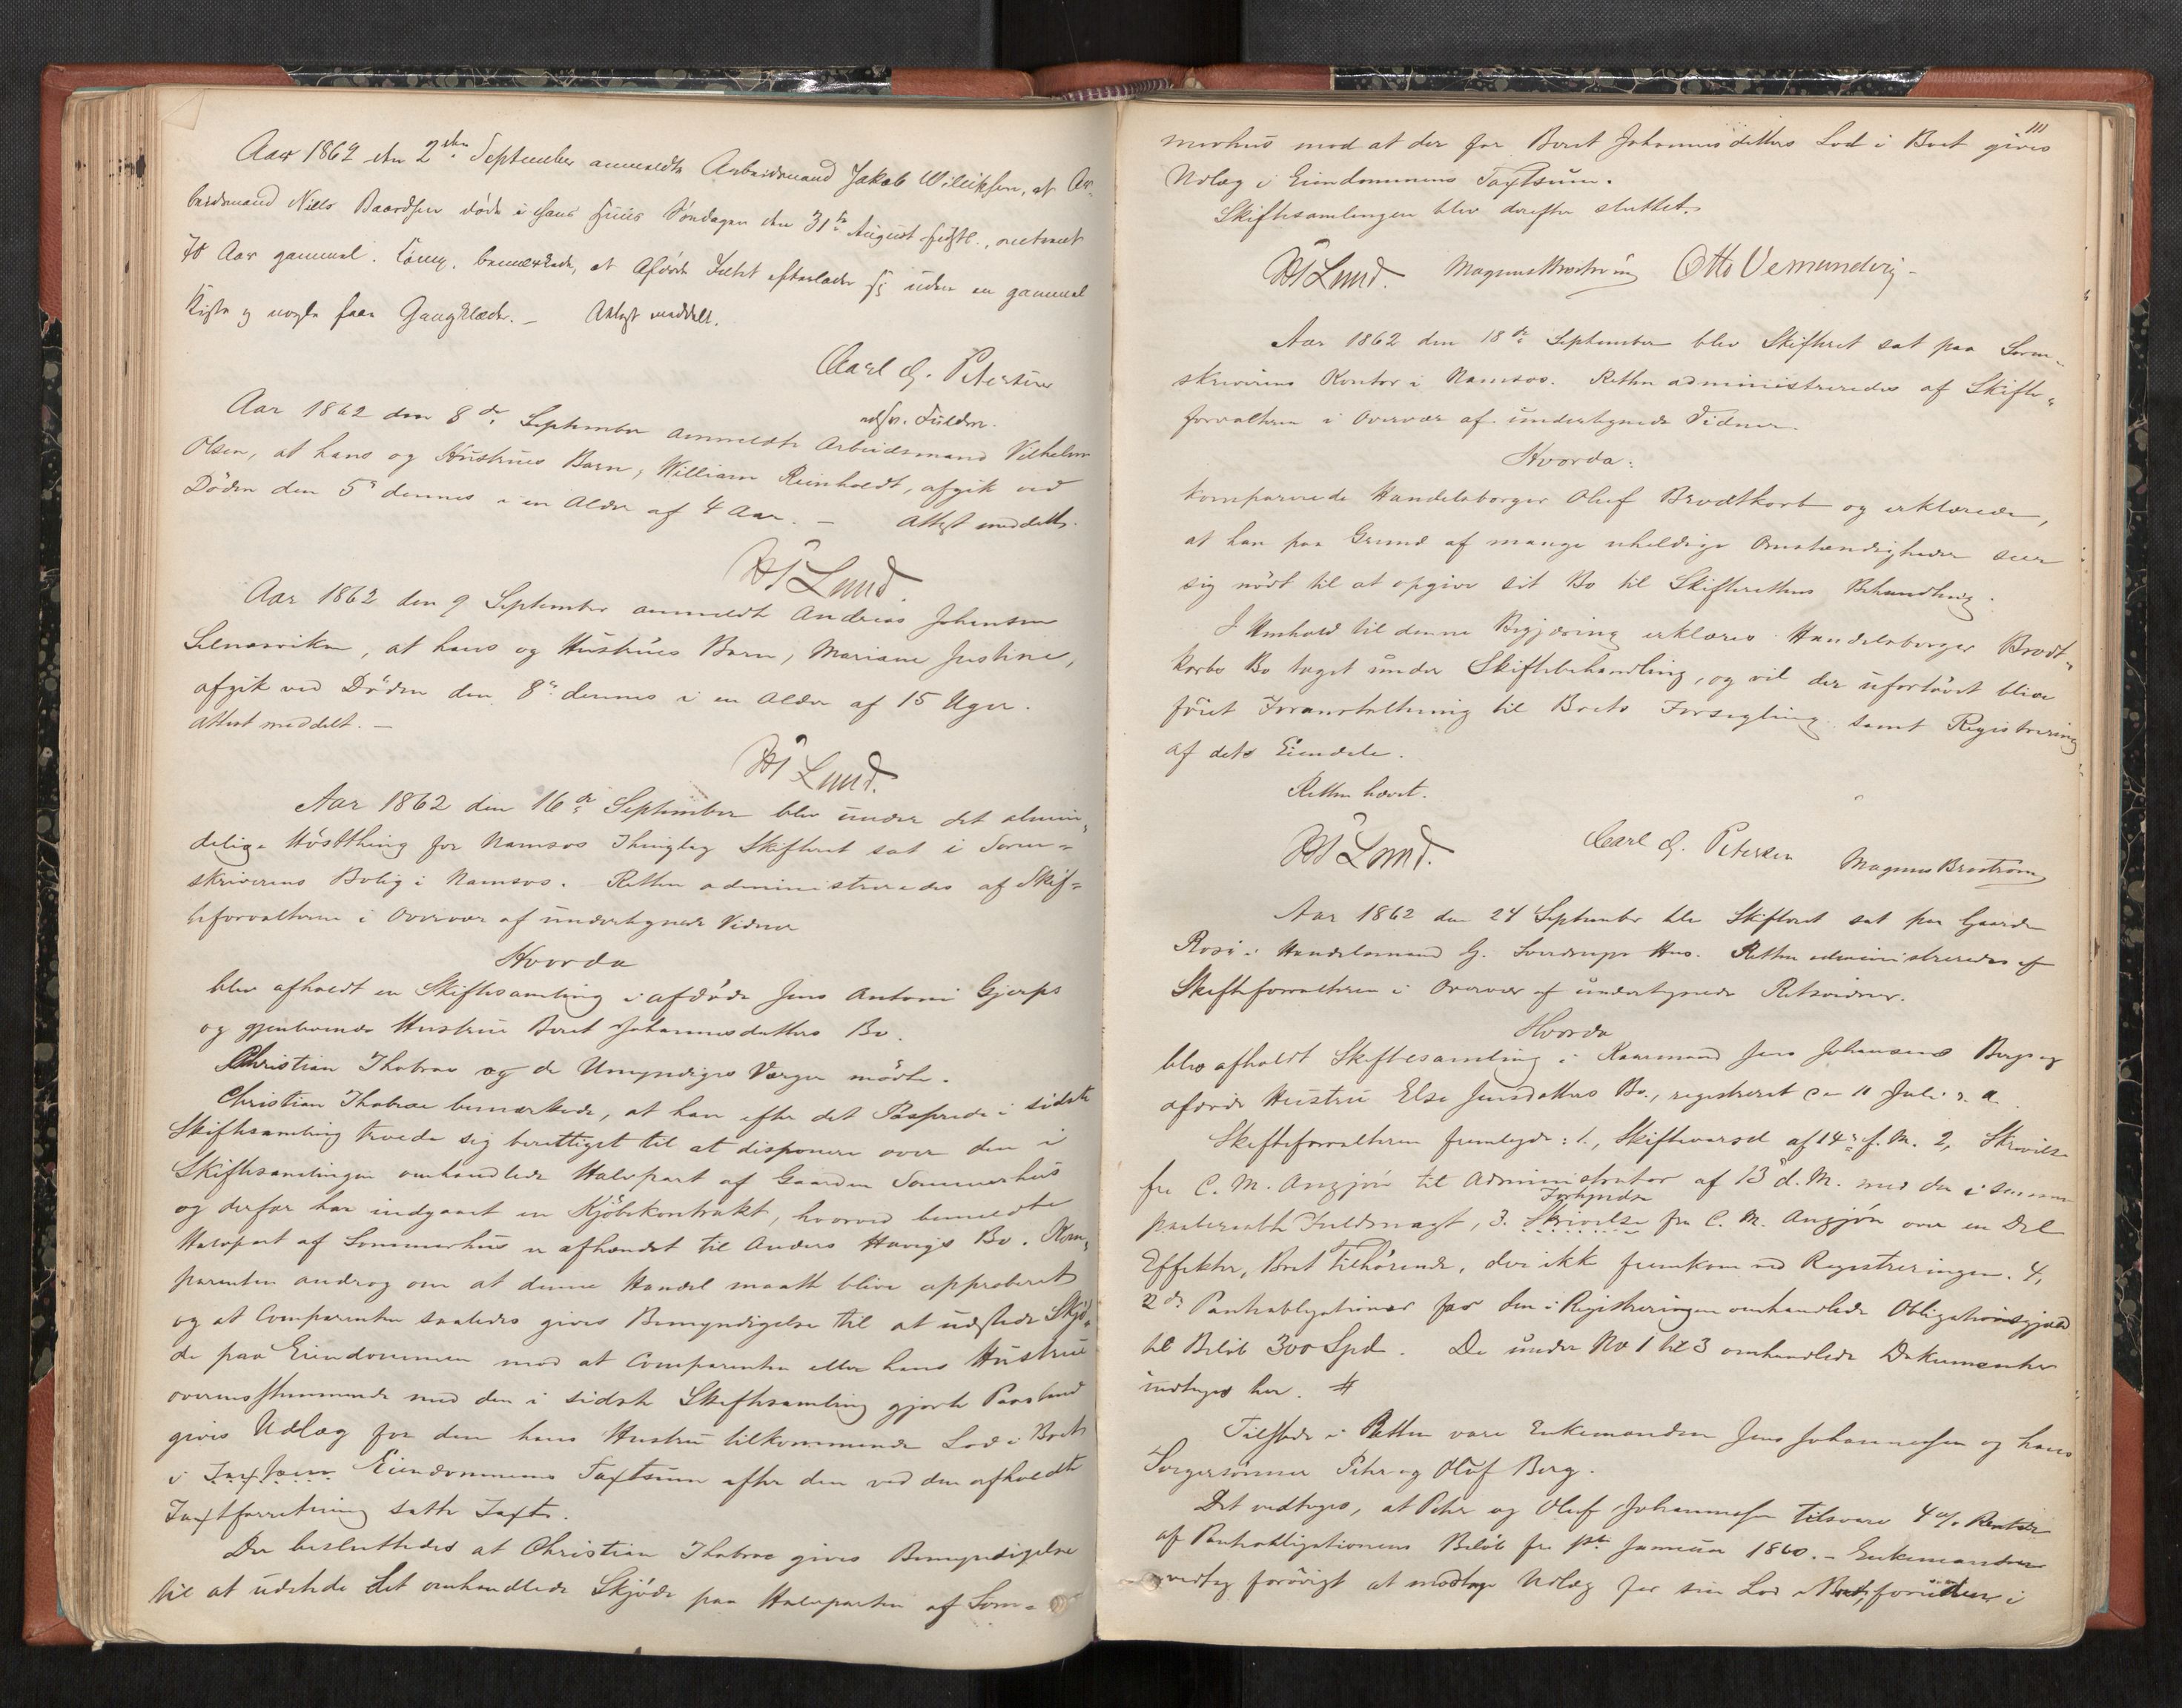 Aar 1862 den 2den September anmeldte Arbeidsmand Jakob Willeksen, at Ar-
beidsmand Niels Baardsen døde i hans Huus Søndagen den 31te August sidstl., omtrent
70 Aar gammel. Comp. bemærkede, at Afdøde Intet efterlader sig uden en gammel
Kiste og nogle faae Gangklæder. – Attest meddelt.
Carl G. Petersen
Aar 1862 den 8de September anmeldte Arbeidsmand Vilhelm
edsv. Fuldm.
Olsen, at hans og Hustrues Barn, William Reinholdt, afgik ved
Döden den 5e dennes i en Alder af 4 Aar. – Attest meddelt.
Lund.
Aar 1862 den 9 September anmeldte Andreas Johnsen
at hans og Hustrues Barn, Mariane Justine,
afgik ved Döden den 8de dennes i en Alder af 15 Uger.
Attest meddelt. –
Lund.
Aar 1862 den 16de September blev under det almin-
delige Hösttthing for Namsos Thinglag Skifteret sat i Soren-
skriverens Bolig i Namsos. Retten administreredes af Skif-
teforvalteren i Overvær af undertegnede Vidner
Hvorda
blev afholdt en Skiftesamling i afdöde Jens Antoni Gjerps
og gjenlevende Hustrue Beret Johannesdatters Bo.
Christian Thobroe og de Umyndiges Værger mödte.
Christian Thobroe bemærkede, at han efter det Passerede i sidste
Skiftesamling troede sig berettiget til at disponere over den i
Skiftesamlingen omhandlede Halvpart af Gaarden Sommerhus
og derfor har indgaaet en Kjöbekontrakt, hvorved bemeldte
Halvpart af Sommerhus er afhændet til Anders Havigs Bo. Kom-
parenten androg om at denne Handel maatte blive approberet
og at Comparenten saaledes gives Bemyndigelse til at udstede Skjö-
de paa Eiendommen mod at Comparenten eller hans Hustrue
overensstemmende med den i sidste Skiftesamling gjorte Paastand
gives Udlæg for den hans Hustru tilkommende Lod i Boet
i Eiendommens Taxtsum efter den ved den afholdte
Taxtforretning satte Taxt.
Der besluttedes at Christian Thobroe gives Bemyndigelse
til at udstede det omhandlede Skjöde paa Halvparten af Som-
111
merhus mod at der for Beret Johannesdatters Lod i Boet gives
Udlæg i Eiendommens Taxtsum.
Skiftesamlingen blev derefter sluttet.
Lund. Magnus Broström Otto Vemundvig
Aar 1862 den 18de September blev Skifteret sat paa Soren-
skriverens Kontor i Namsos. Retten administreredes af Skifte-
forvalteren i Overvær af undertegnede Vidner.
Hvorda:
komparerede Handelsborger Oluf Brodtkorb og erklærede,
at han paa Grund af mange uheldige Omstændigheder seer
sig nödt til at opgive sit Bo til Skifterettens Behandling.
I Henhold til denne Begjæring erklæres Handelsborger Brodt-
korbs Bo taget under Skiftebehandling, og vil der ufortövet blive
föiet Foranstaltning til Boets Forsegling samt Registrering
af dets Eiendele.
Retten hævet.
Lund. Carl G. Petersen Magnus Broström
Aar 1862 den 24 September blev Skifteret sat paa Gaarden
Rosi i Handelsmand G. Sverdrups Hus. Retten administreredes af
Skifteforvalteren i Overvær af undertegnede Retsvidner.
Hvorda
blev afholdt Skiftesamling i Kaarmand Jens Johansens Berg og
afdöde Hustru Else Jensdatters Bo, registreret den 10 Juli d. a.
Skifteforvalteren fremlagde: 1., Skiftevarsel af 14de f. M. 2, Skrivelse
fra C. M. Angjön til Administrator af 13 d. M. med den i samme
Fortegnelse
paaberaabte Fuldmagt, 3. Skrivelse fra C. M. Angjön over en Del
Effekter, Boet tilhörende, der ikke fremkom ved Registreringen. 4,
2de Panteobligationer for den i Registreringen omhandlede Obligationsgjæld
til Belöb 300 Spd. De under No 1 til 3 omhandlede Dokumenter
indtages her. #
Tilstede i Retten vare Enkemanden Jens Johannesen og hans
Peter og Oluf Berg.
Det vedtoges, at Peter og Oluf Johannesen tilsvare 4 o/o Renter
af Panteobligationens Belöb fra 1ste Januar 1860. – Enkemanden
vedtog forövrigt at modtage Udlæg for sin Lod i Boet, i